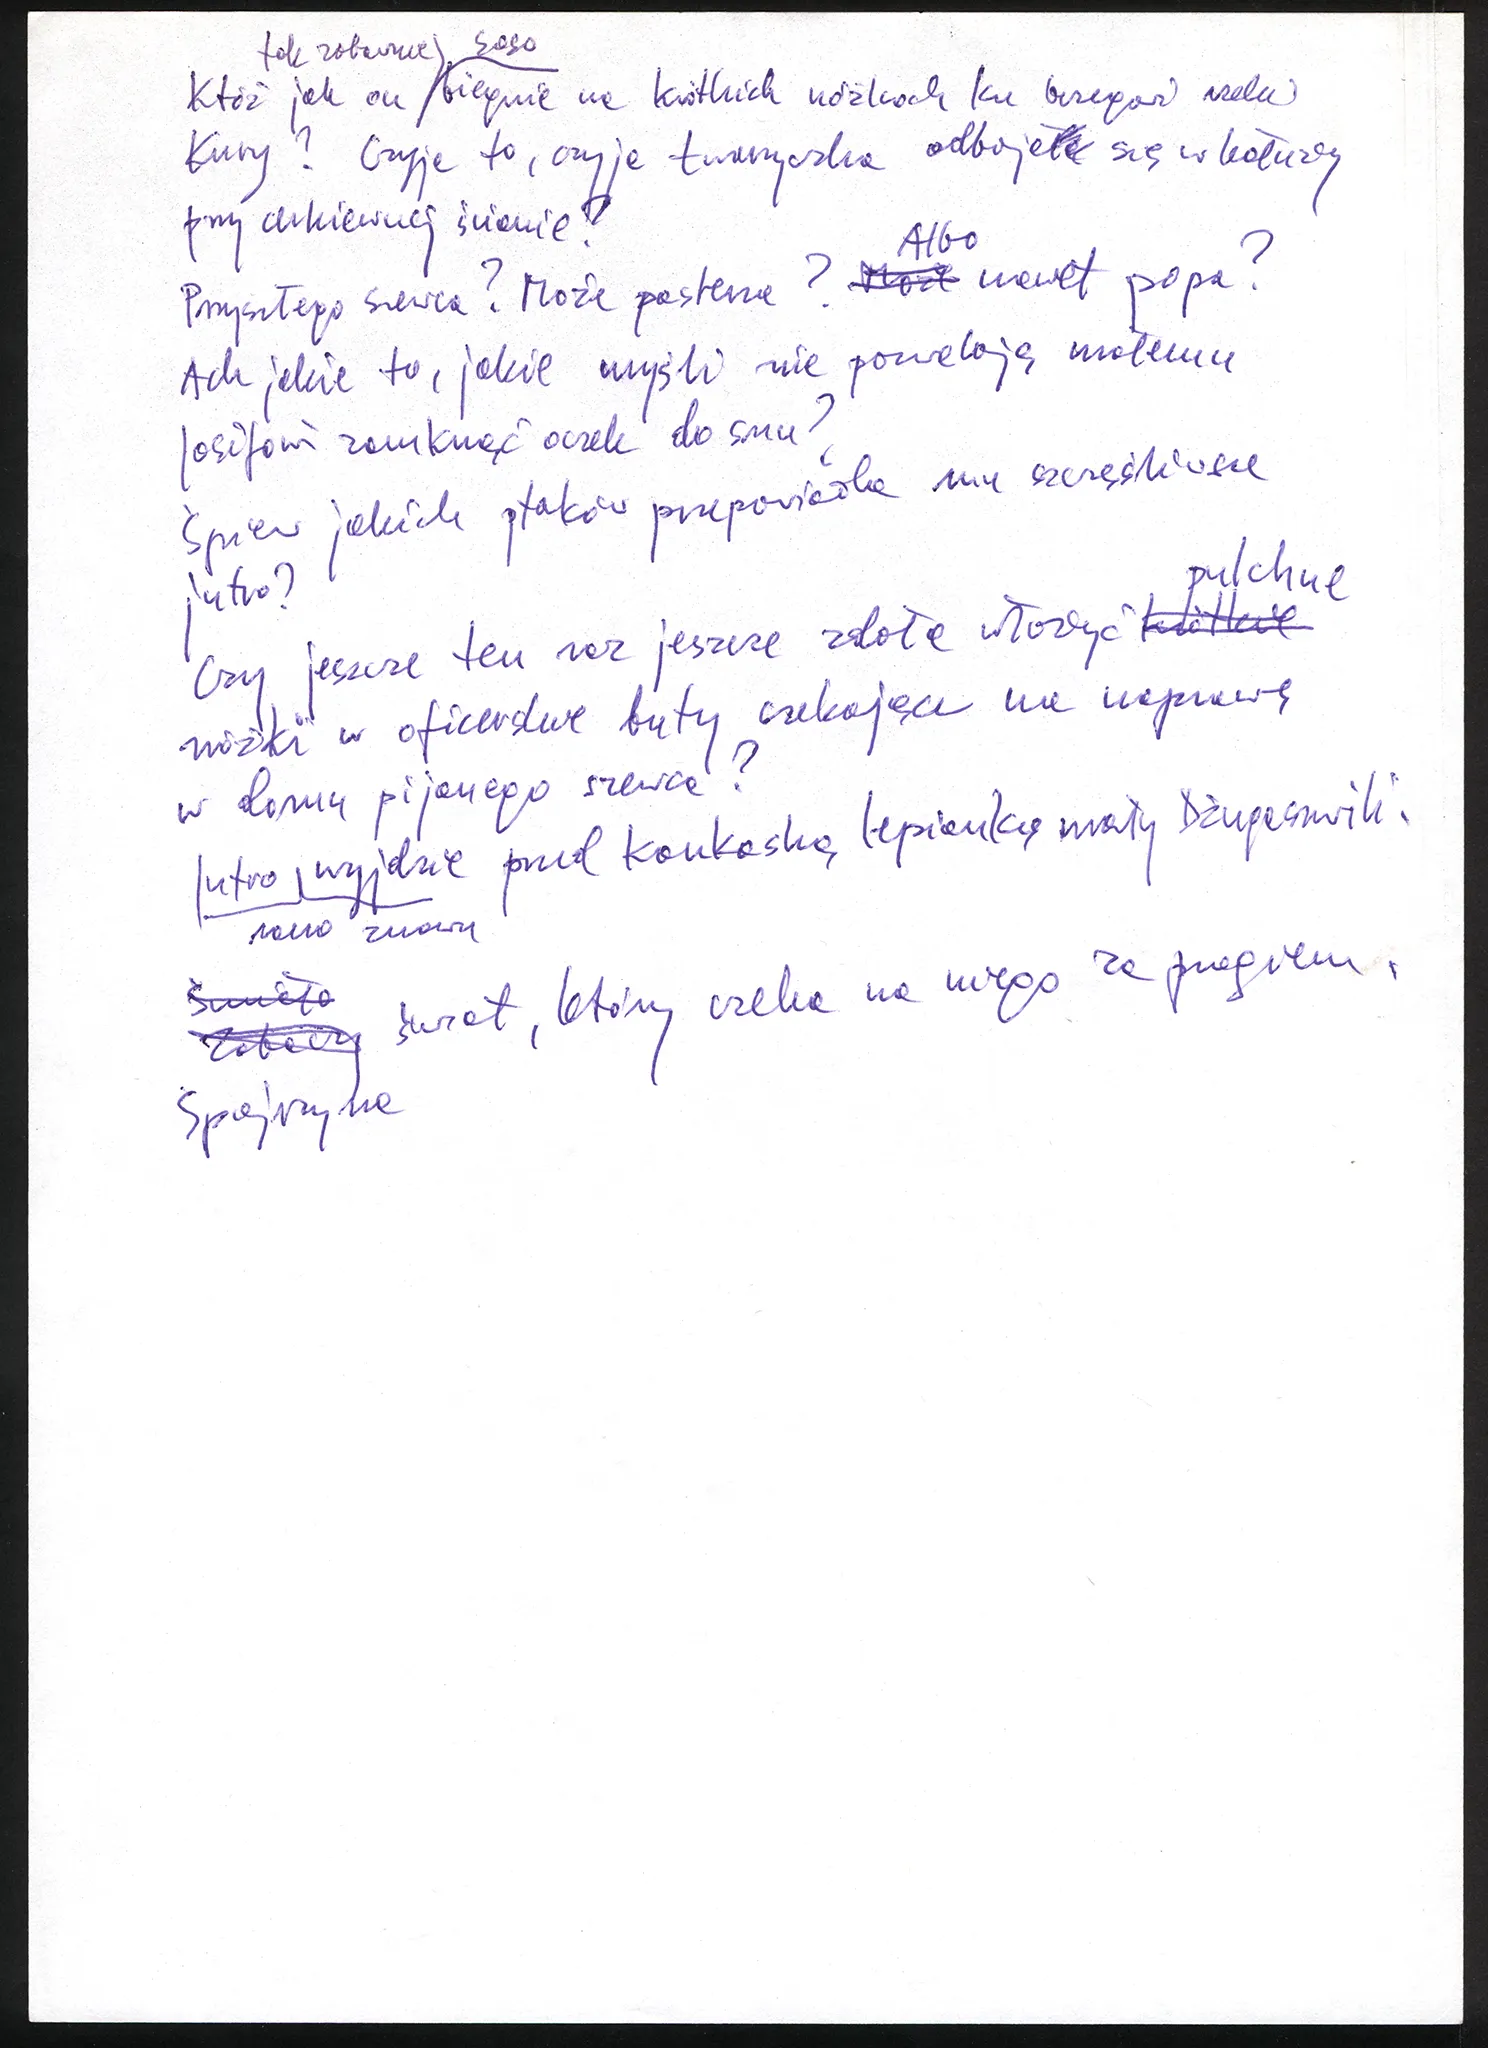 tak zabawnej soso
Któż jak on biegnie na krótkich nóżkach ku brzegowi rzeki
Kury? Czyje to, czyje twarzyczka odbija się w kałuży
przy cerkiewnej ścianie?
Albo
Przyszłego szewca? Może pasterza? Może nawet popa?
Ach jakie to, jakie myśli nie pozwalają małemu
Josifowi zamknąć oczek do snu?
Śpiew jakich ptaków przepowiada mu szczęśliwsze
jutro?
pulchne
Czy jeszcze ten raz jeszcze zdoła włożyć krótkie
nóżki w oficerskie buty czekające na naprawę
w domu pijanego szewca?
Jutro, wyjdzie przed kaukaską lepiankę mały Dżugaszwili.
rano znowu
śmieje
Zobaczy świat, który czeka na niego za progiem.
Spojrzy na